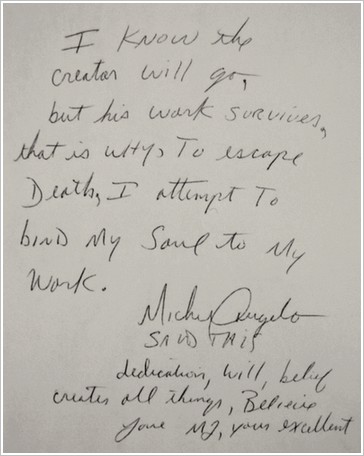 I KNOW the
creator will go,
but his work SURVIVES,
that is why, To escape
Death, I attempt To
bind My Soul to My
Work.
Michelangelo
SAID THIS
dedication, will, belief
creates all things, Believe
your MJ, your excellent